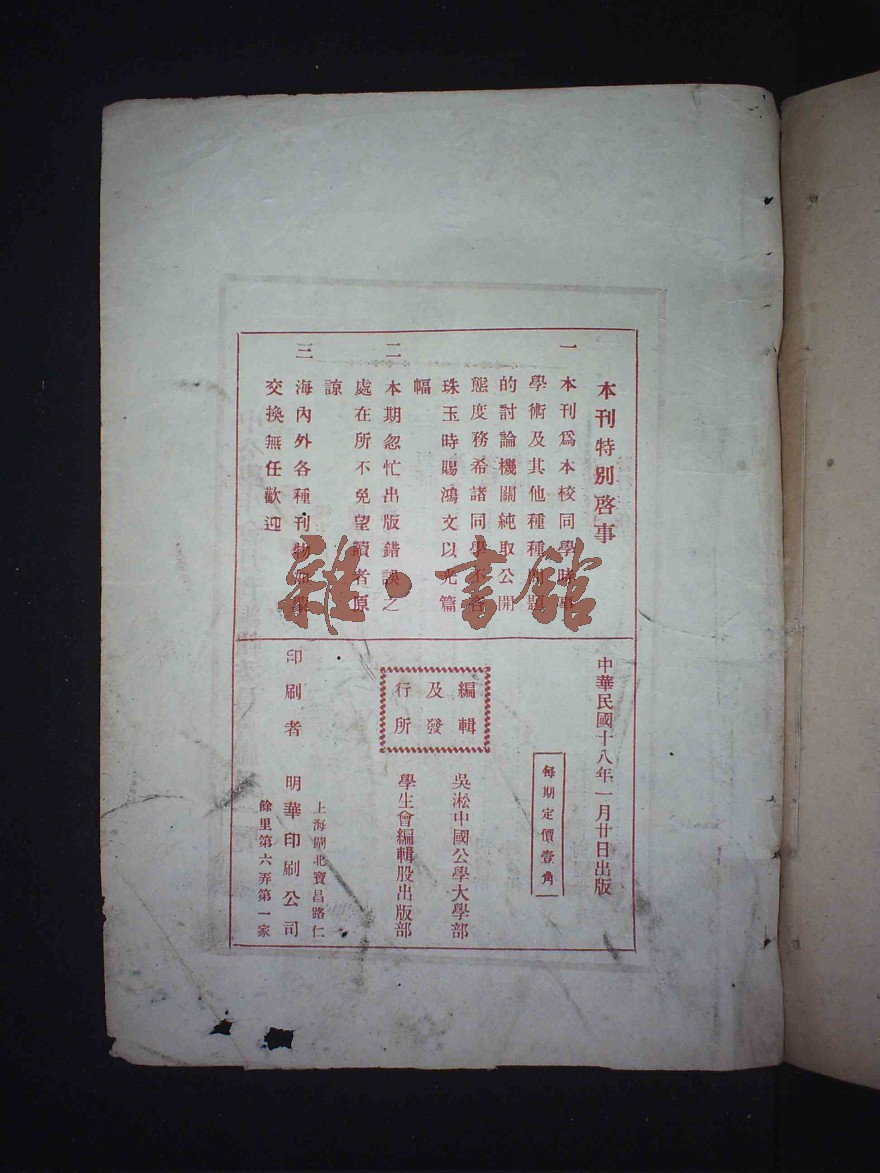 本刊特別啓事
一 本刊爲本校同學時事
學術及其他種種問題
的討論機關純取公開
態度務希諸同學不吝
珠玉時賜鴻文以光篇
幅
二 本期忽忙出版錯誤之
處在所不免望讀者原
諒
三 海內外各種刊物如
交換無任歡迎
中華民國十八年一月廿日出版
每期定價壹角
編輯
及發
行所
吳淞中國公學大學部
學生會編輯股出版部
印刷者 明華印刷公司
上海閘北寶昌路仁
餘里第六弄第一家
雜·書館